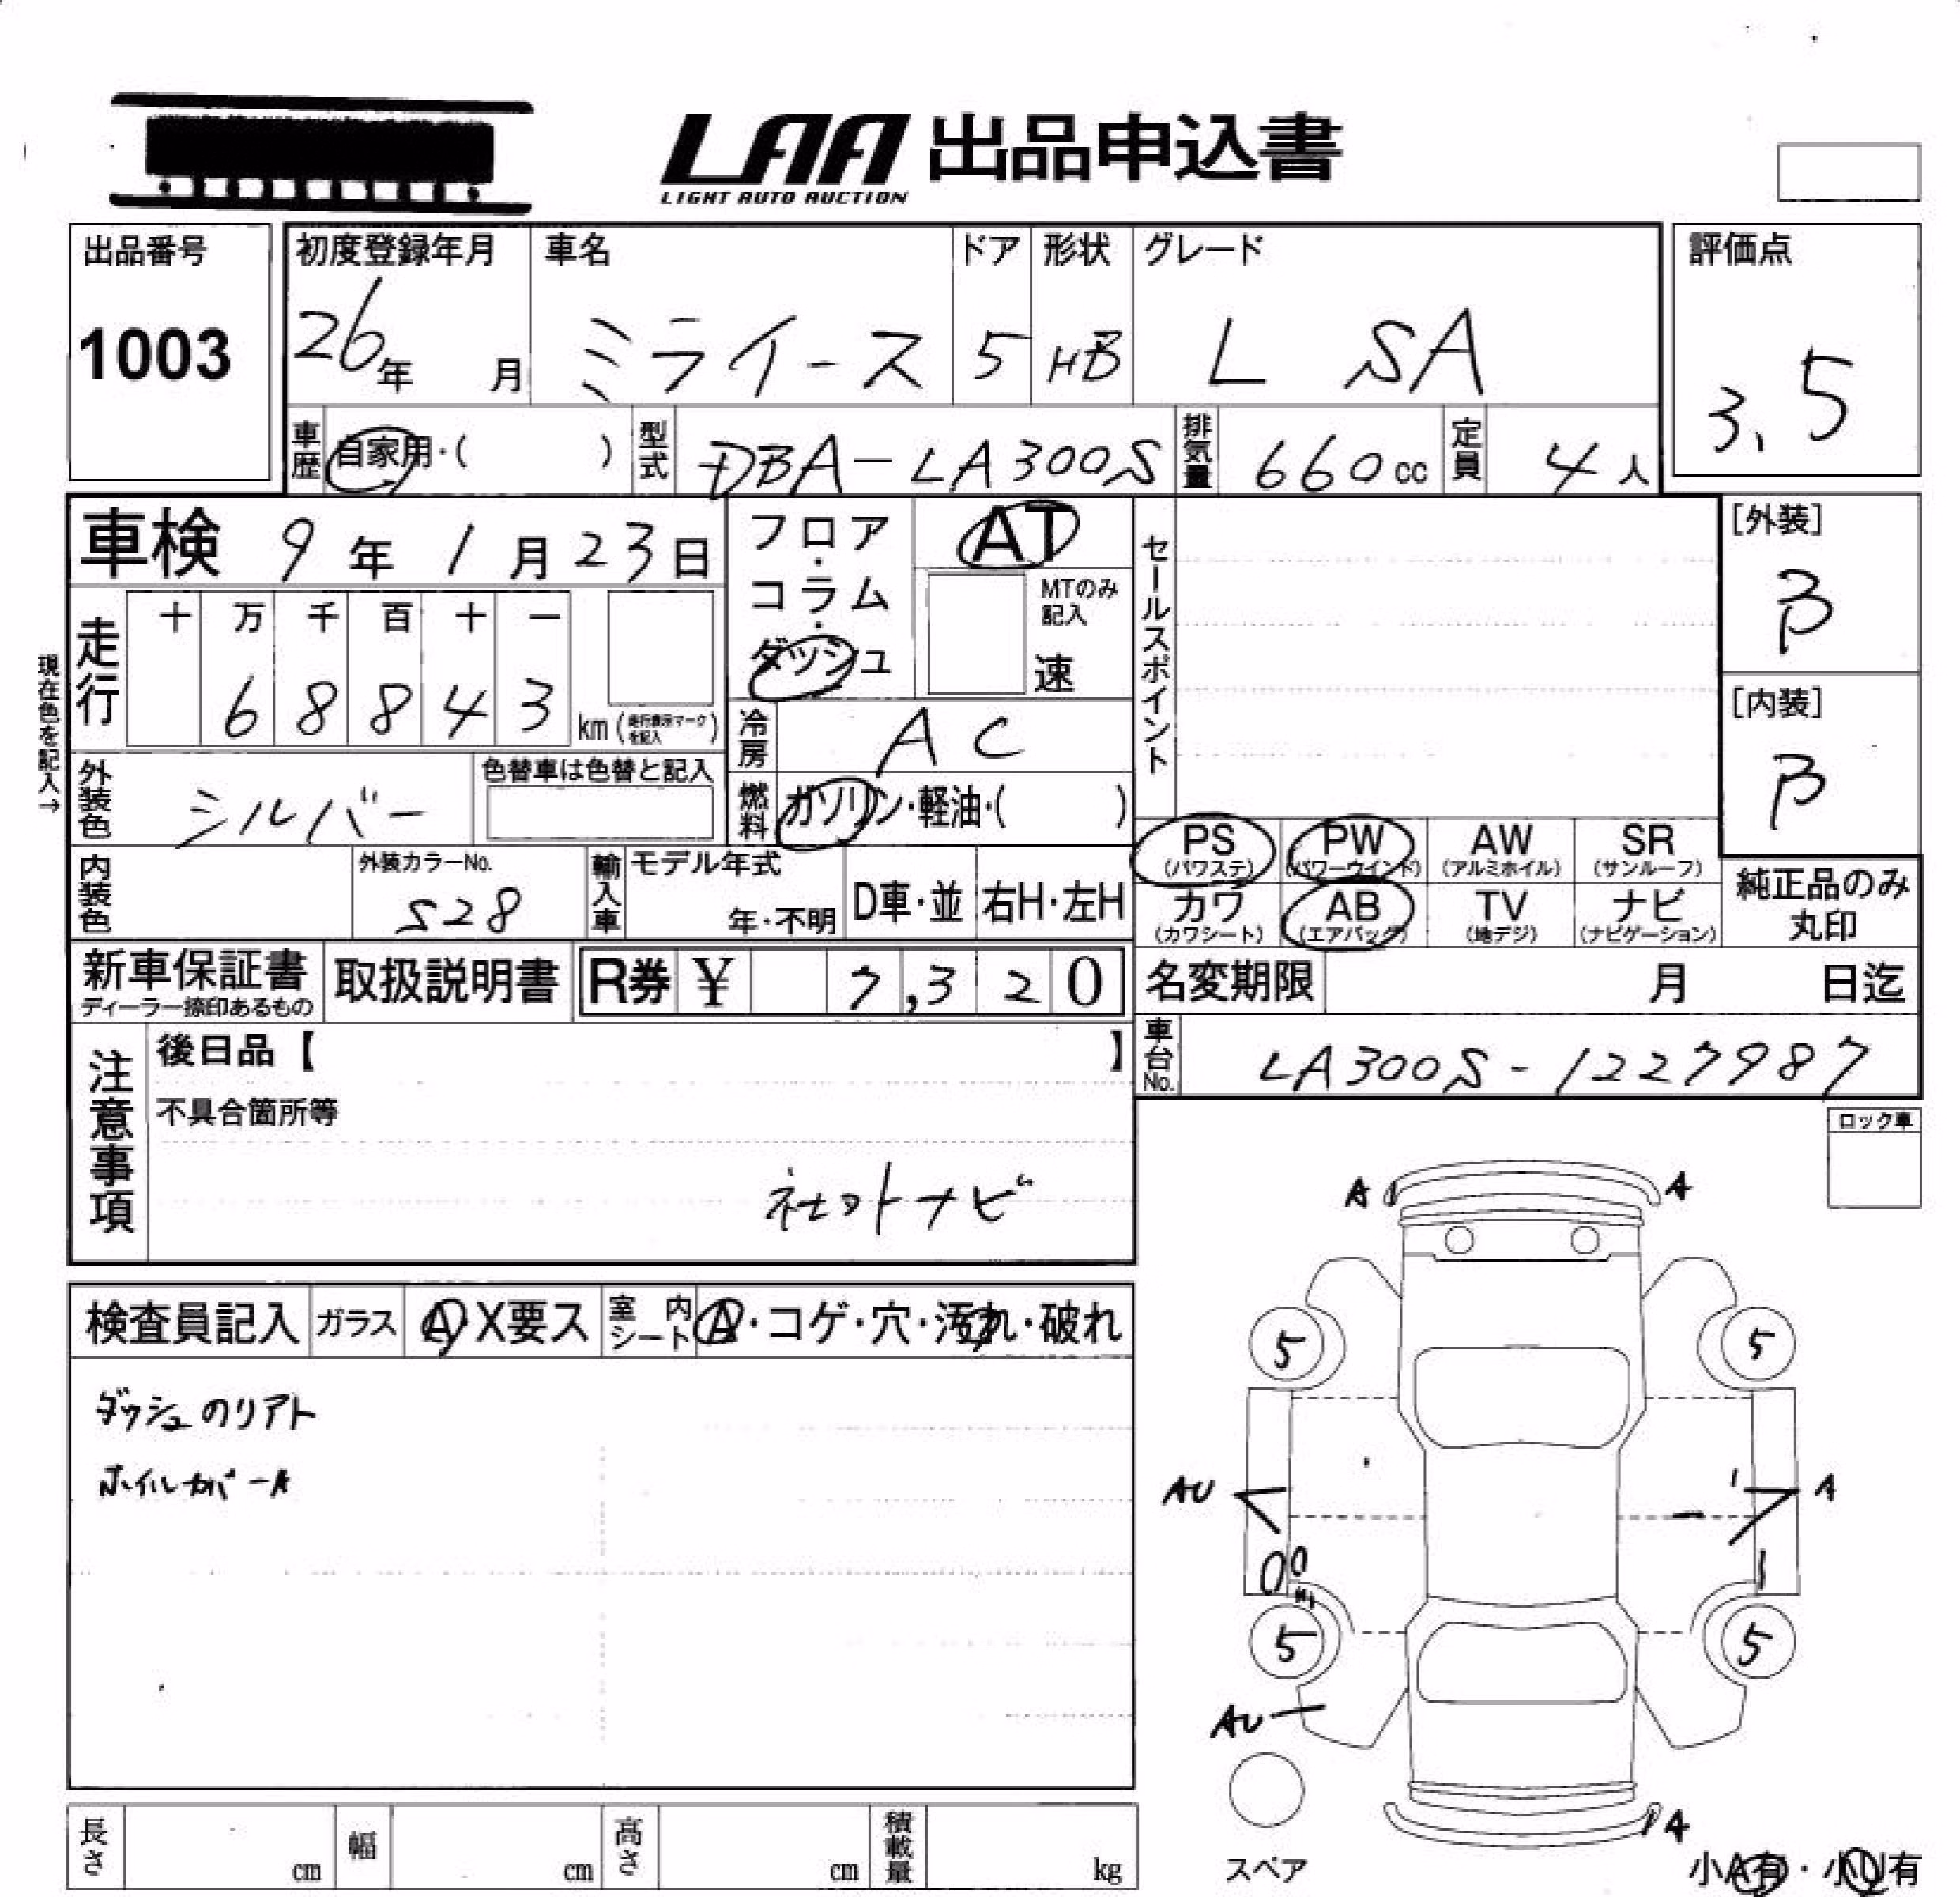 LAA 出品申込書
LIGHT AUTO AUCTION
出品番号
1003
初度登録年月
26年 月
車名
ミライース
ドア
5
形状
HB
グレード
L SA
評価点
3.5
車歴 自家用・( )
型式 DBA-LA300S
排気量 660cc
定員 4人
車検 9年1月23日
フロア・コラム・ダッシュ
AT
MTのみ記入
速
セールスポイント
[外装]
B
[内装]
B
現在色を記入→
走行
十 万 千 百 十 一
6 8 8 4 3 km (走行表示マークを記入)
冷房 AC
外装色 シルバー
色替車は色替と記入
燃料 ガソリン・軽油・( )
PS (パワステ)
PW (パワーウインド)
AW (アルミホイル)
SR (サンルーフ)
カワ (カワシート)
AB (エアバッグ)
TV (地デジ)
ナビ (ナビゲーション)
純正品のみ丸印
内装色
外装カラーNo.
S28
輸入車
モデル年式
年・不明
D車・並
右H・左H
新車保証書
ディーラー捺印あるもの
取扱説明書
R券 ¥ 7,320
名変期限 月 日迄
車台No. LA300S-1227987
注意事項
後日品【 】
不具合箇所等
社外ナビ
ロック車
検査員記入
ガラス A・X要ス
室内シート A・コゲ・穴・汚れ・破れ
ダッシュのリアト
ホイルカバーA
A A
5 5
AU A
5 5
AU
A
スペア
小A有・小U有
長さ cm
幅 cm
高さ cm
積載量 kg